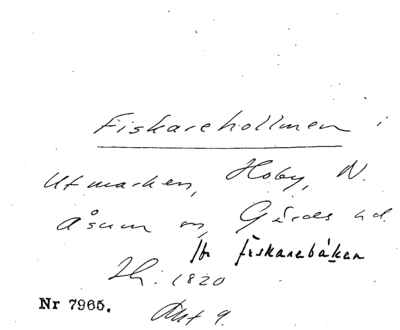 Fiskarehollmen i
Utmarken, Hoby, N.
Åsum sn, Gärds hd.
Jfr fiskarebäken
Lh. 1820
Nr 7965. Akt 9.